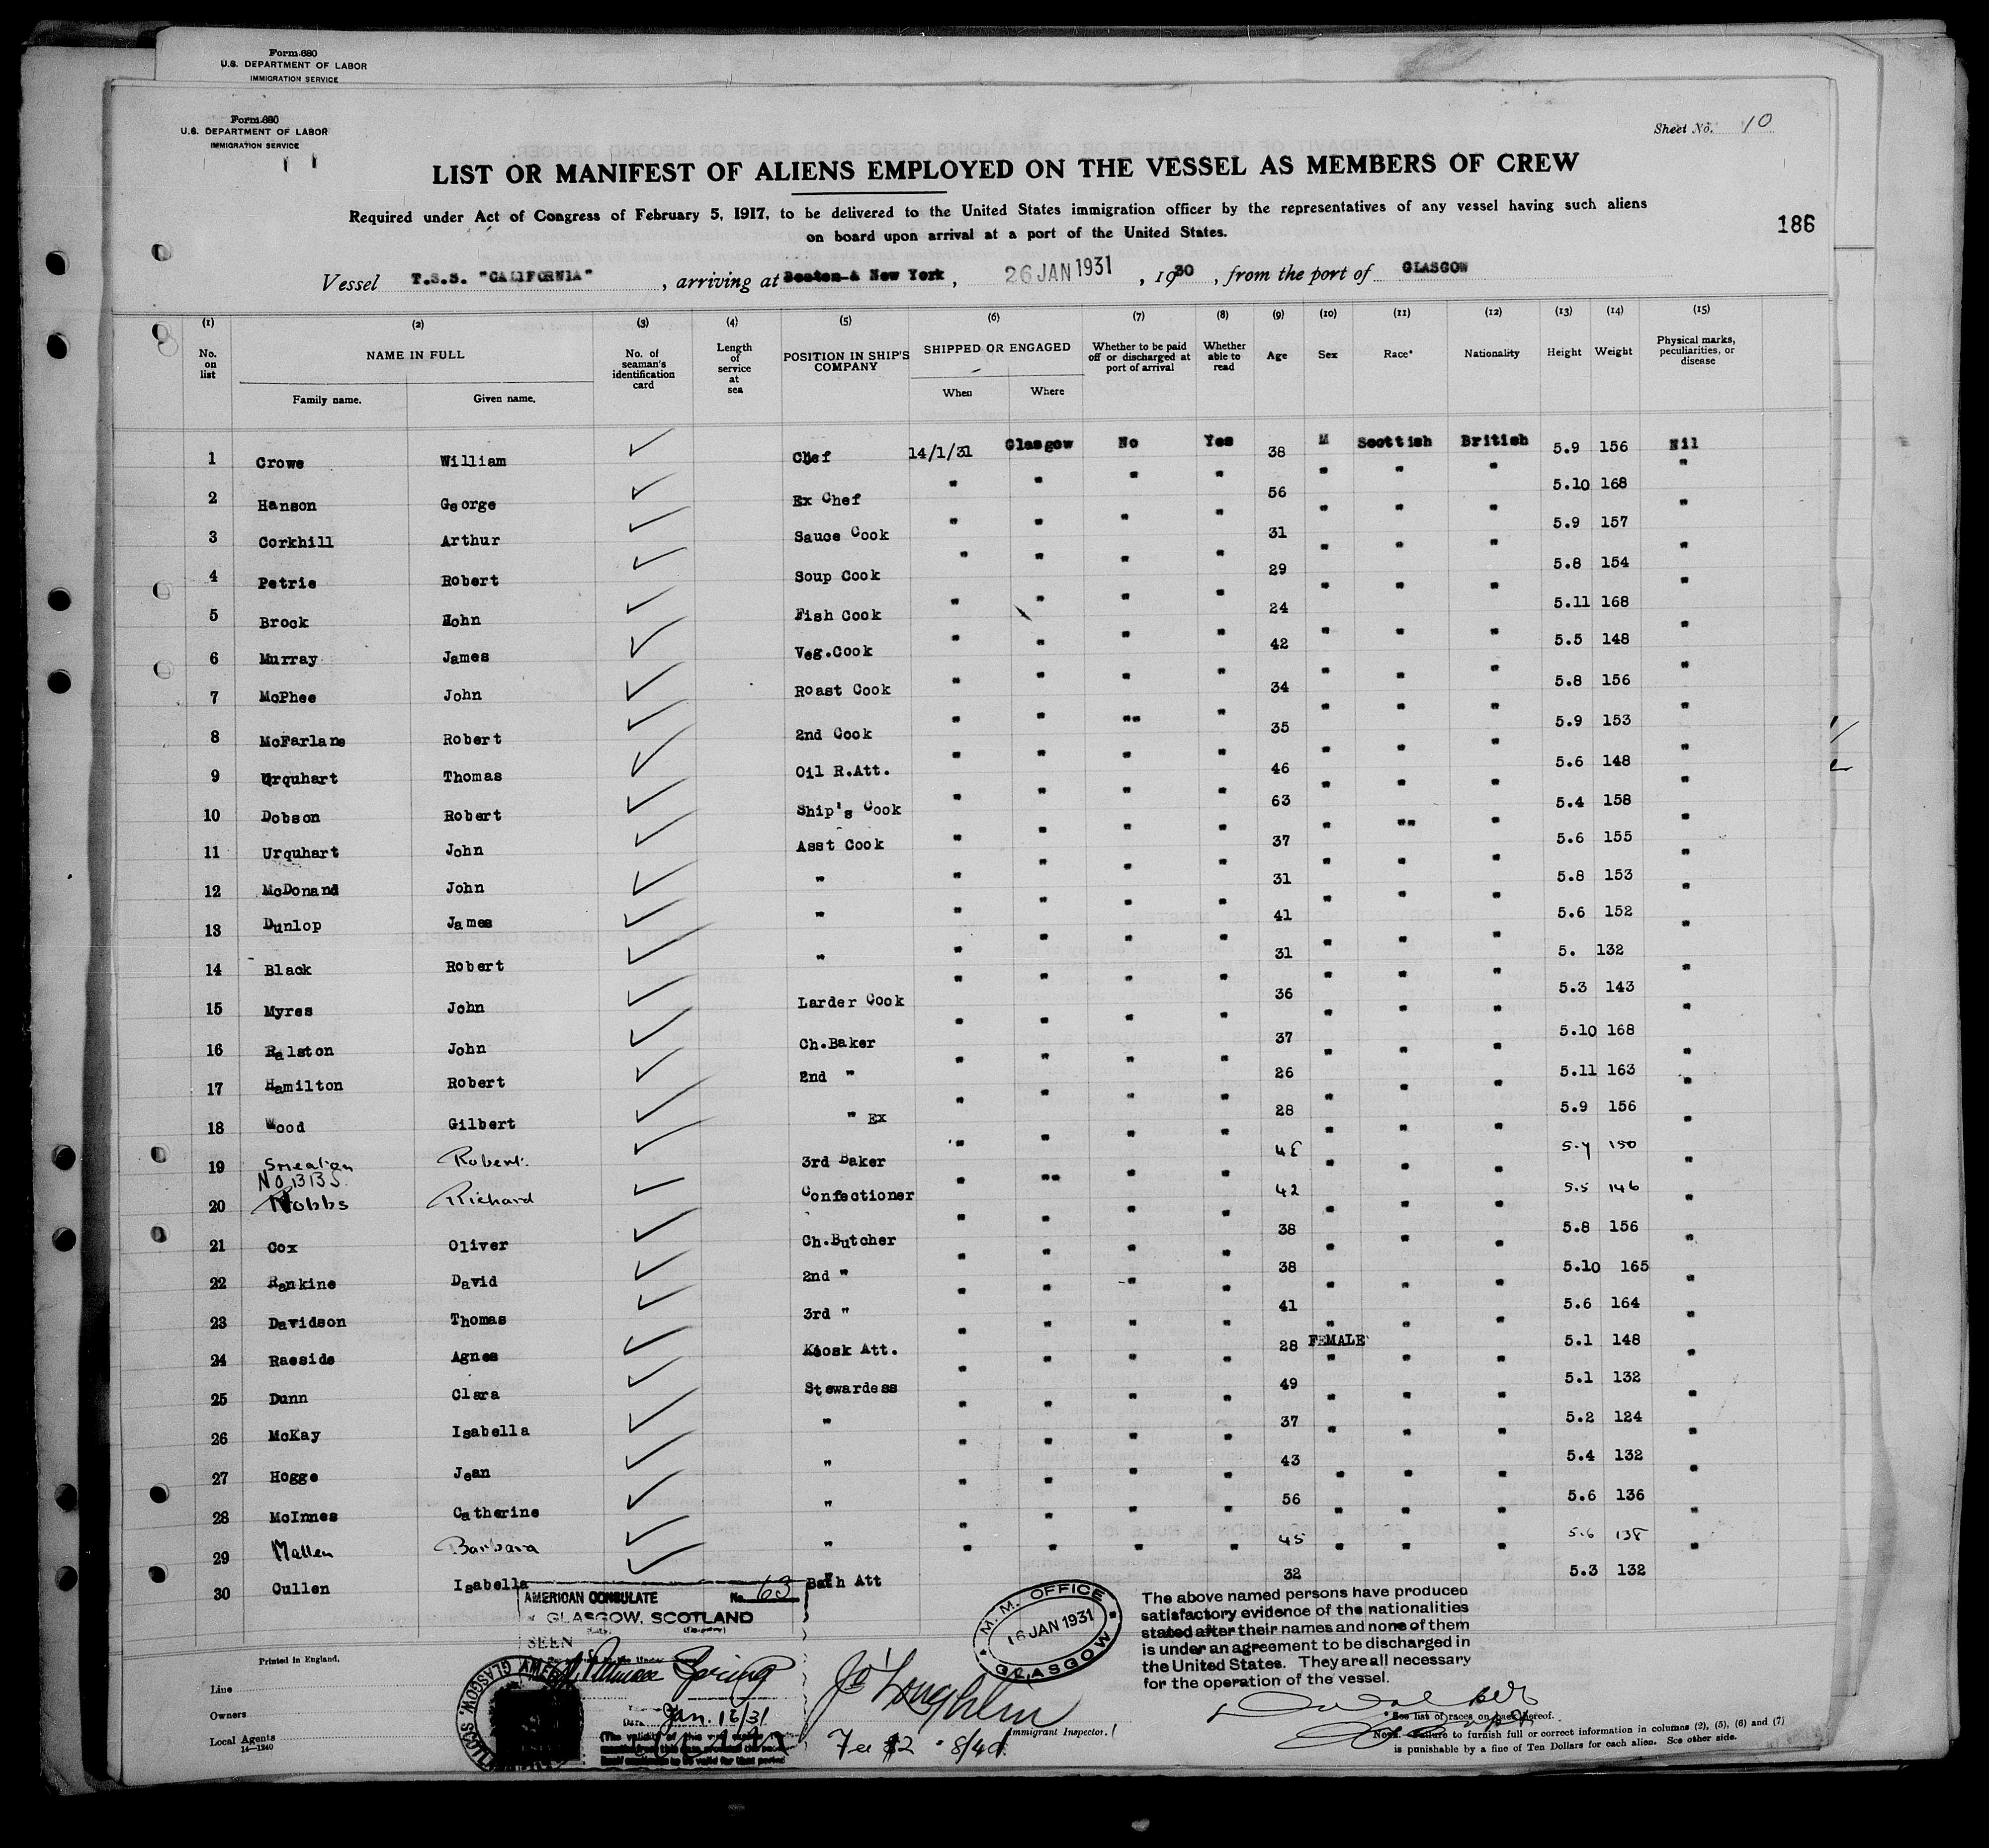 Form 680
U.S. DEPARTMENT OF LABOR
IMMIGRATION SERVICE
Form 680
U.S. DEPARTMENT OF LABOR
IMMIGRATION SERVICE
Sheet No. 10
LIST OR MANIFEST OF ALIENS EMPLOYED ON THE VESSEL AS MEMBERS OF CREW
Required under Act of Congress of February 5, 1917, to be delivered to the United States immigration officer by the representatives of any vessel having such aliens
on board upon arrival at a port of the United States.
186
Vessel T.S.S. "CALIFORNIA" , arriving at Boston & New York , 26 JAN 1931 , 1930 , from the port of GLASGOW
(1) (2) (3) (4) (5) (6) (7) (8) (9) (10) (11) (12) (13) (14) (15)
No. on list NAME IN FULL Family name. Given name. No. of seaman's identification card Length of service at sea POSITION IN SHIP'S COMPANY SHIPPED OR ENGAGED When Where Whether to be paid off or discharged at port of arrival Whether able to read Age Sex Race* Nationality Height Weight Physical marks, peculiarities, or disease
1 Crowe William ✓ Chef 14/1/31 Glasgow No Yes 38 M Scottish British 5.9 156 Nil
2 Hanson George ✓ Ex Chef " " " " 56 " " " 5.10 168 "
3 Corkhill Arthur ✓ Sauce Cook " " " " 31 " " " 5.9 157 "
4 Petrie Robert ✓ Soup Cook " " " " 29 " " " 5.8 154 "
5 Brock John ✓ Fish Cook " " " " 24 " " " 5.11 168 "
6 Murray James ✓ Veg.Cook " " " " 42 " " " 5.5 148 "
7 McPhee John ✓ Roast Cook " " " " 34 " " " 5.8 156 "
8 McFarlane Robert ✓ 2nd Cook " " "" " 35 " " " 5.9 153 "
9 Urquhart Thomas ✓ Oil R.Att. " " " " 46 " " " 5.6 148 "
10 Dobson Robert ✓ Ship's Cook " " " " 63 " " " 5.4 158 "
11 Urquhart John ✓ Asst Cook " " " " 37 " "" " 5.6 155 "
12 McDonand John ✓ " " " " " 31 " " " 5.8 153 "
13 Dunlop James ✓ " " " " " 41 " " " 5.6 152 "
14 Black Robert ✓ " " " " " 31 " " " 5. 132 "
15 Myres John ✓ Larder Cook " " " " 36 " " " 5.3 143 "
16 Ralston John ✓ Ch.Baker " " " " 37 " " " 5.10 168 "
17 Hamilton Robert ✓ 2nd " " " " " 26 " " " 5.11 163 "
18 Wood Gilbert ✓ " Ex " " " " 28 " " " 5.9 156 "
19 Smeaton Robert. ✓ 3rd Baker " " " " " " " 150 "
20 Nobbs Richard ✓ Confectioner " "" " " 42 " " " 5.5 146 "
21 Cox Oliver ✓ Ch.Butcher " " " " 38 " " " 5.8 156 "
22 Rankine David ✓ 2nd " " " " " 38 " " " 5.10 165 "
23 Davidson Thomas ✓ 3rd " " " " " 41 " " " 5.6 164 "
24 Raeside Agnes ✓ Kiosk Att. " " " " 28 FEMALE " " 5.1 148 "
25 Dunn Clara ✓ Stewardess " " " " 49 " " " 5.1 132 "
26 McKay Isabella ✓ " " " " " 37 " " " 5.2 124 "
27 Hogge Jean ✓ " " " " " 43 " " " 5.4 132 "
28 McInnes Catherine ✓ " " " " " 56 " " " 5.6 136 "
29 Mallen Barbara ✓ " " " " " 45 " " " 5.6 138 "
30 Cullen Isabella ✓ Bath Att " " " " 32 " " " 5.3 132 "
AMERICAN CONSULATE No. 63
GLASGOW, SCOTLAND
SEEN
Jan. 16/31
M. M. OFFICE
16 JAN 1931
GLASGOW
The above named persons have produced
satisfactory evidence of the nationalities
stated after their names and none of them
is under an agreement to be discharged in
the United States. They are all necessary
for the operation of the vessel.
Printed in England.
Line
Owners
Local Agents
14—1240
Immigrant Inspector.
Fee $2 = 8/4d.
* See list of races on back hereof.
NOTE.—Failure to furnish full or correct information in columns (2), (5), (6) and (7)
is punishable by a fine of Ten Dollars for each alien. See other side.